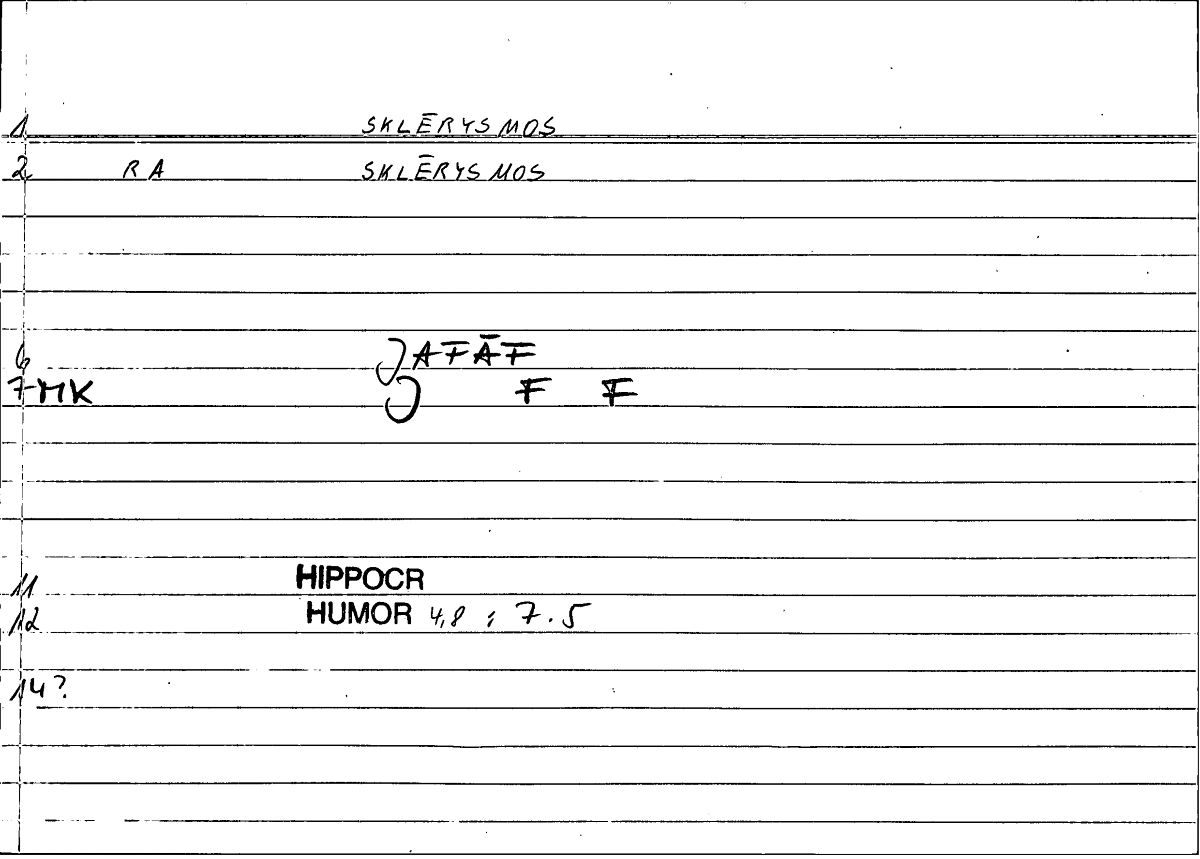 1 SKLĒRYSMOS
2 RA SKLĒRYSMOS
6 JAFĀF
7 MK J F F
11 HIPPOCR
12 HUMOR 4,8 ; 7.5
14?